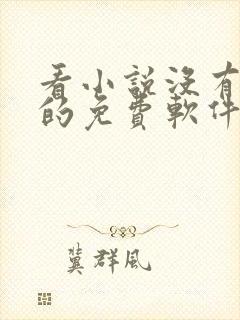 看小說沒有
的免費軟件
冀群風